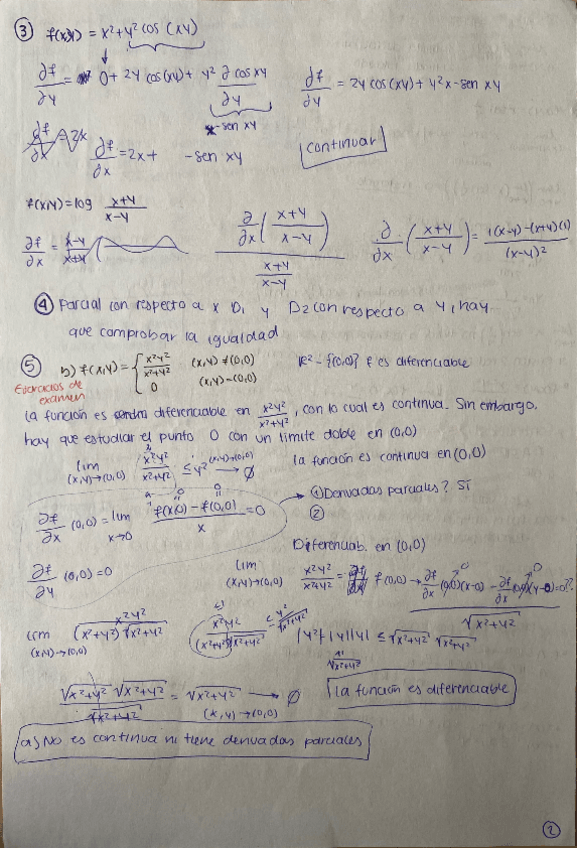 ③ f(x,y) = x²+y² cos (xy)
∂f/∂y = 0 + 2y cos(xy) + y² ∂ cos xy/∂y
-sen xy
∂f/∂y = 2y cos(xy) + y²x-sen xy
∂f/∂x = 2x
∂f/∂x = 2x + -sen xy
continuar
f(x,y) = log x+y/x-y
∂f/∂x = x-y/x+y
∂/∂x (x+y/x-y) / x+y/x-y
∂/∂x (x+y/x-y) = 1(x-y)-(x+y)(1)/(x-y)²
④ Parcial con respecto a x D₁ y D₂ con respecto a y, hay
que comprobar la igualdad
⑤ b) f(x,y) = { x²y²/x²+y² (x,y) ≠ (0,0)
0 (x,y) = (0,0)
R² - {(0,0)} f es diferenciable
Ejercicios de
examen
La función es diferenciable en x²y²/x²+y², con lo cual es continua. Sin embargo,
hay que estudiar el punto 0 con un límite doble en (0,0)
lim (x,y)→(0,0) x²y²/x²+y² ≤ y² (x,y)→(0,0) → 0
la función es continua en (0,0)
∂f/∂x (0,0) = lim x→0 f(x,0) - f(0,0)/x = 0
① Derivadas parciales? Sí
②
Diferenciab. en (0,0)
∂f/∂y (0,0) = 0
lim (x,y)→(0,0) x²y²/x²+y² = f(0,0) → ∂f/∂x (0,0)(x-0) - ∂f/∂x (0,0)(y-0) = 0??
√x²+y²
lim (x,y)→(0,0) x²y²/(x²+y²)√x²+y²
x²y²/(x²+y²)√x²+y² ≤ y²/√x²+y²
|y²| |y||y| ≤ √x²+y² √x²+y²
√x²+y²
√x²+y² √x²+y²/√x²+y² = √x²+y² → 0
(x,y)→(0,0)
La función es diferenciable
a) No es continua ni tiene derivadas parciales
2